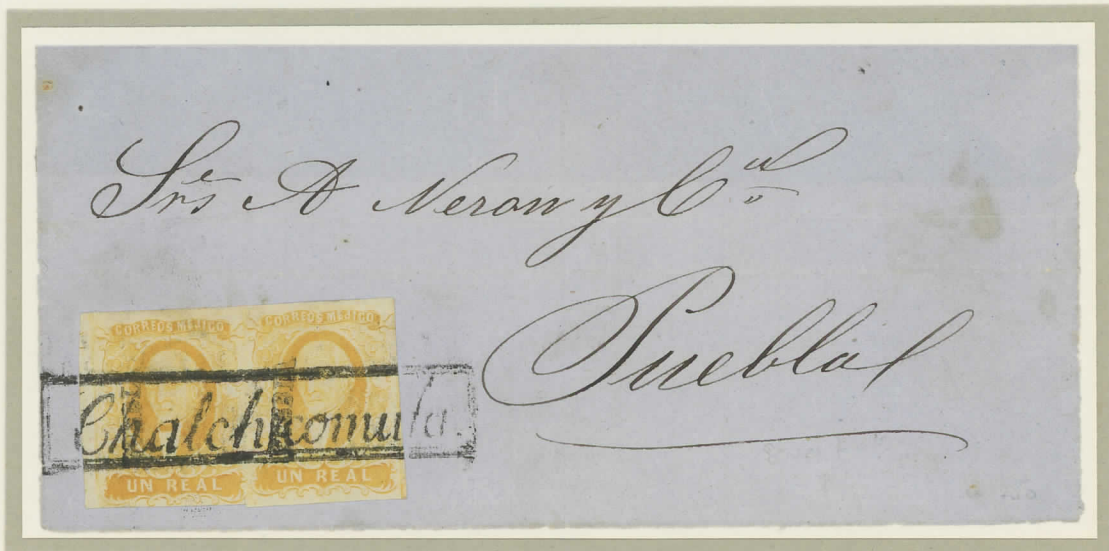 Sres A Neron y Cia
Puebla
CORREOS MEJICO CORREOS MEJICO
Chalchicomula.
UN REAL UN REAL